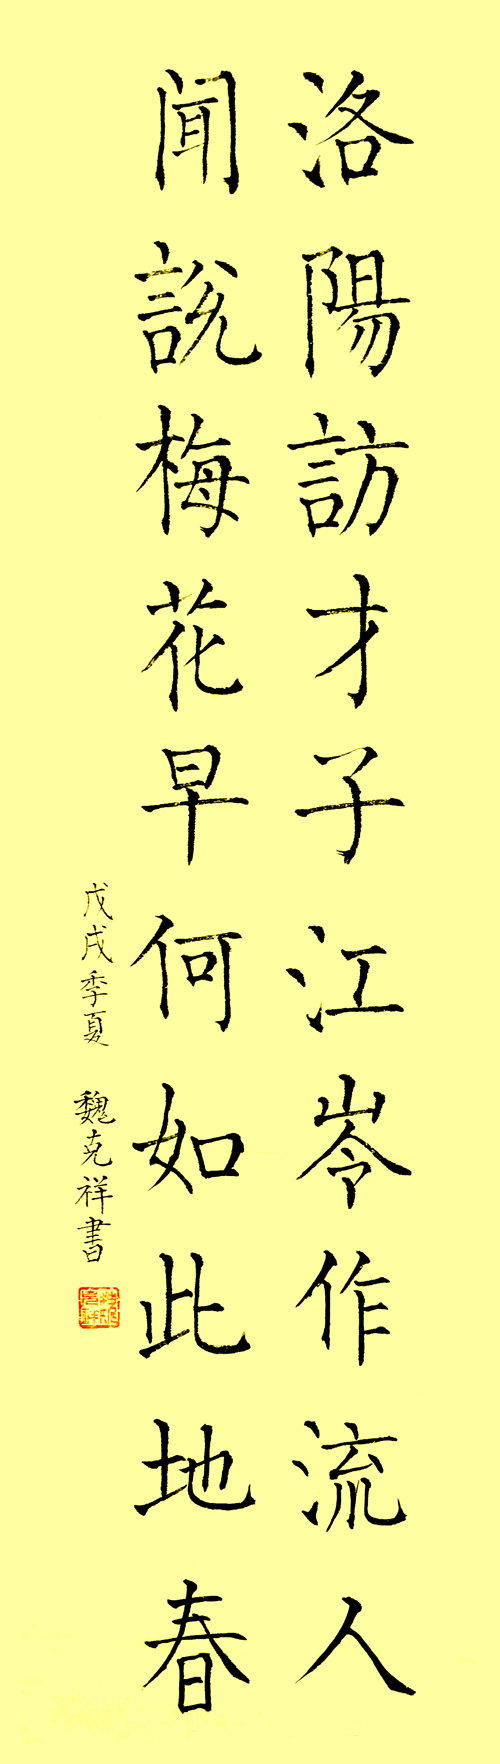 洛陽訪才子江岺作流人
闻説梅花早何如此地春
戊戌季夏 魏克祥書